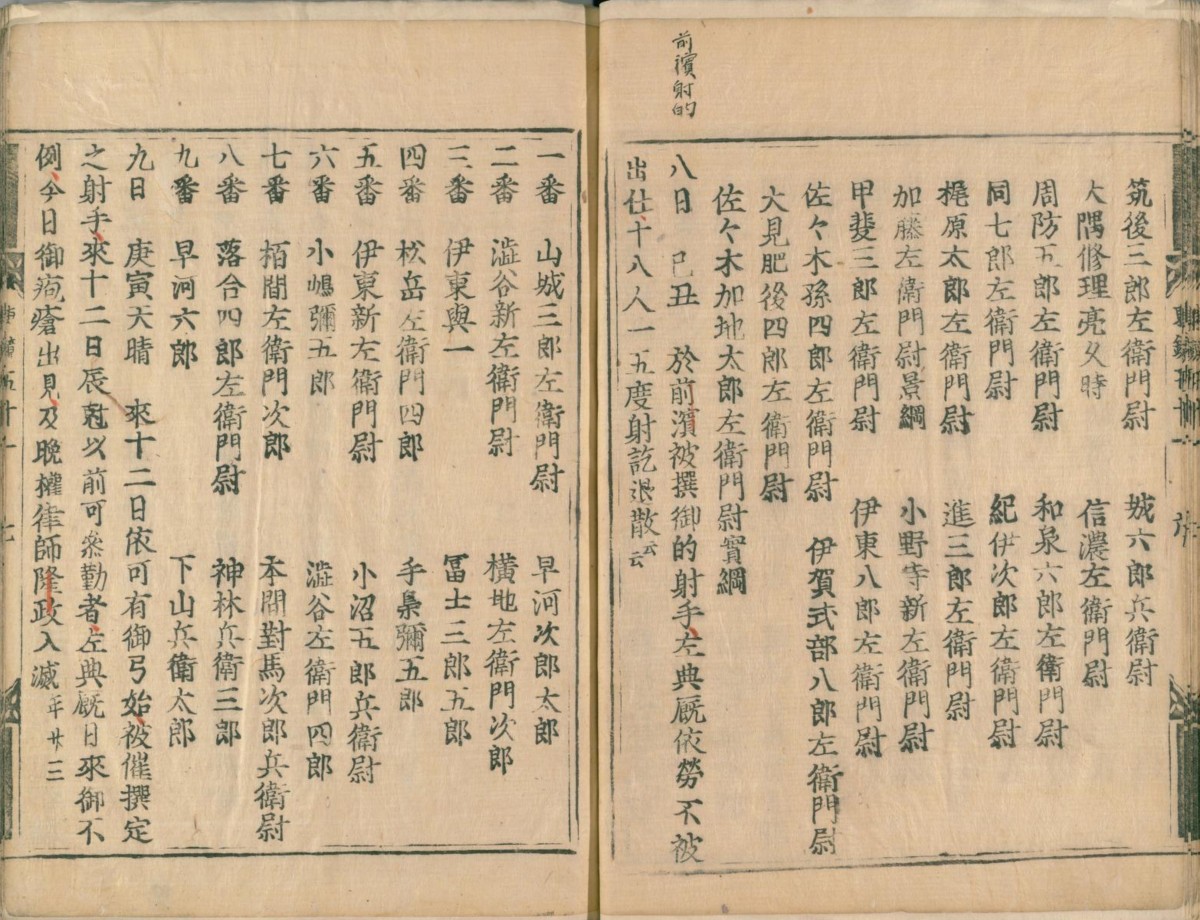 前濱射的
筑後三郎左衛門尉 城六郎兵衛尉
大隅修理亮久時 信濃左衛門尉
周防五郎左衛門尉 和泉六郎左衛門尉
同七郎左衛門尉 紀伊次郎左衛門尉
梶原太郎左衛門尉 進三郎左衛門尉
加藤左衛門尉景綱 小野寺新左衛門尉
甲斐三郎左衛門尉 伊東八郎左衛門尉
佐々木孫四郎左衛門尉 伊賀式部八郎左衛門尉
大見肥後四郎左衛門尉
佐々木加地太郎左衛門尉實綱
八日 己丑 於前濱被撰御的射手左典厩依勞不被
出仕十八人一五度射訖退散云云
一番 山城三郎左衛門尉 早河次郎太郎
二番 澁谷新左衛門尉 横地左衛門次郎
三番 伊東與一 冨士三郎五郎
四番 松岳左衛門四郎 手梟彌五郎
五番 伊東新左衛門尉 小沼五郎兵衛尉
六番 小嶋彌五郎 澁谷左衛門四郎
七番 栢間左衛門次郎 本間對馬次郎兵衛尉
八番 落合四郎左衛門尉 神林兵衛三郎
九番 早河六郎 下山兵衛太郎
九日 庚寅天晴 來十二日依可有御弓始被催撰定
之射手來十二日辰尅以前可叅勤者左典厩日來御不
例今日御疱瘡出見及晩權律師隆政入滅年廿三